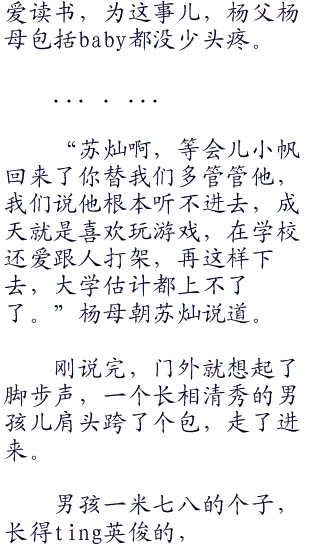 爱读书，为这事儿，杨父杨
母包括baby都没少头疼。
... . ...
“苏灿啊，等会儿小帆
回来了你替我们多管管他，
我们说他根本听不进去，成
天就是喜欢玩游戏，在学校
还爱跟人打架，再这样下
去，大学估计都上不了
了。”杨母朝苏灿说道。
刚说完，门外就想起了
脚步声，一个长相清秀的男
孩儿肩头跨了个包，走了进
来。
男孩一米七八的个子，
长得ting英俊的，